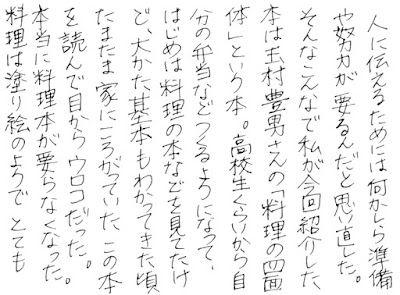 人に伝えるためには何かしら準備
や努力が要るんだと思い直した。
そんなこんなで私が今回紹介した
本は玉村豊男さんの「料理の四面
体」という本。高校生くらいから自
分の弁当などつくるようになって、
はじめは料理の本などを見てたけ
ど、大かた基本もわかってきた頃
たまたま家にころがっていたこの本
を読んで目からウロコだった。
本当に料理本が要らなくなった。
料理は塗り絵のようで とても